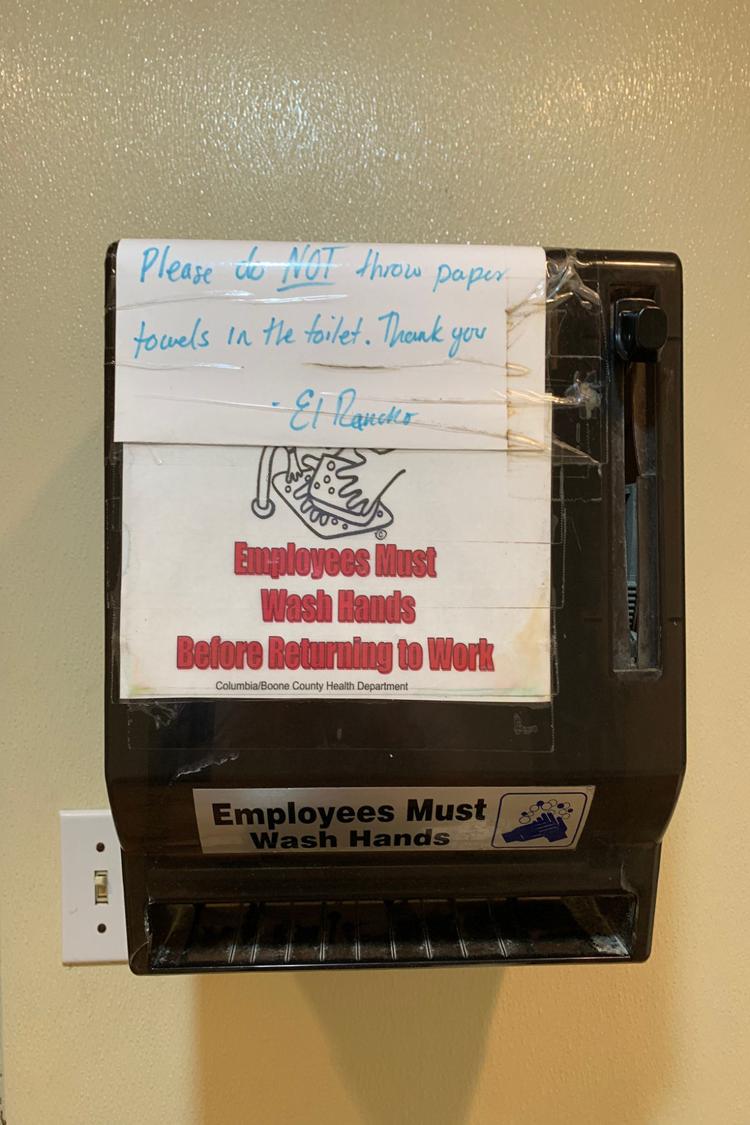 Please do NOT throw paper
towels in the toilet. Thank you
- El Rancho
©
Employees Must
Wash Hands
Before Returning to Work
Columbia/Boone County Health Department
Employees Must
Wash Hands